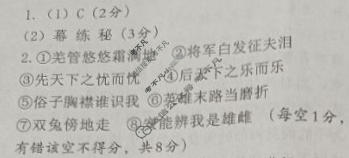 1. (1) C (2分)
(2) 幕 练 秘 (3分)
2. ①羌管悠悠霜满地 ②将军白发征夫泪
③先天下之忧而忧 ④后天下之乐而乐
⑤俗子胸襟谁识我 ⑥英雄末路当磨折
⑦双兔傍地走 ⑧安能辨我是雄雌 (每空1分,
有错该空不得分,共8分)